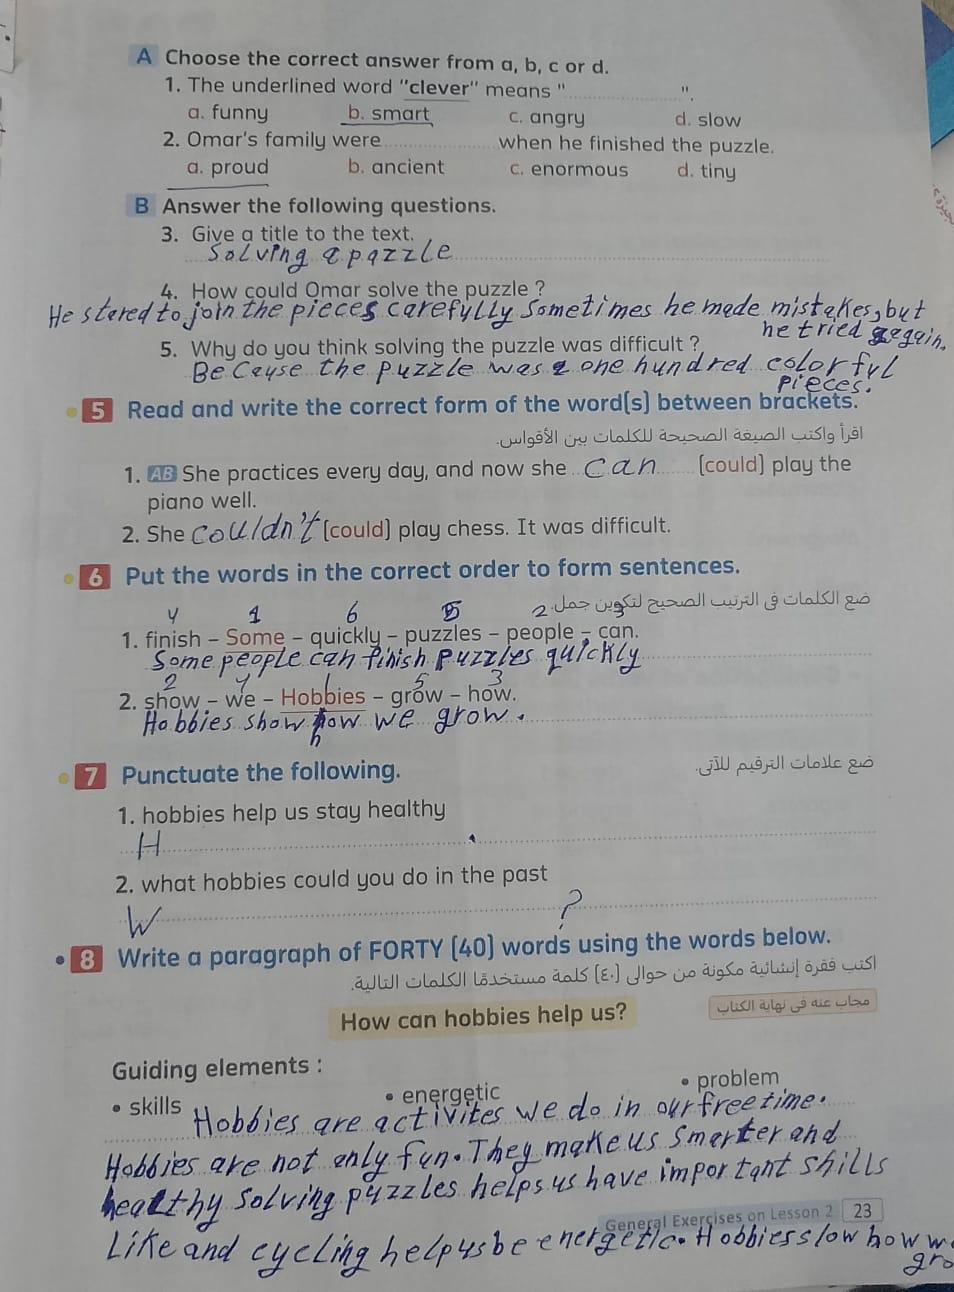 A Choose the correct answer from a, b, c or d.
1. The underlined word "clever" means "..................".
a. funny b. smart c. angry d. slow
2. Omar's family were .................. when he finished the puzzle.
a. proud b. ancient c. enormous d. tiny
B Answer the following questions.
3. Give a title to the text.
Solving a pazzle
4. How could Omar solve the puzzle ?
He stared to join the pieces carefully Sometimes he made mistakes, but
he tried gegain.
5. Why do you think solving the puzzle was difficult ?
BeCause the puzzle was a one hundred colorful
pieces.
5 Read and write the correct form of the word(s) between brackets.
اقرأ واكتب الصيغة الصحيحة للكلمات بين الأقواس.
1. AB She practices every day, and now she can (could) play the
piano well.
2. She couldn't (could) play chess. It was difficult.
6 Put the words in the correct order to form sentences.
ضع الكلمات في الترتيب الصحيح لتكوين جمل.
4 1 6 5 2 3
1. finish – Some – quickly – puzzles – people – can.
Some people can finish puzzles quickly
2 4 1 5 3
2. show – we – Hobbies – grow – how.
Hobbies show how we grow.
h
7 Punctuate the following.
ضع علامات الترقيم للآتى.
1. hobbies help us stay healthy
H .
2. what hobbies could you do in the past
W ?
8 Write a paragraph of FORTY (40) words using the words below.
اكتب فقرة إنشائية مكونة من حوالى (٤٠) كلمة مستخدمًا الكلمات التالية.
How can hobbies help us?
مجاب عنه فى نهاية الكتاب
Guiding elements :
• skills • energetic • problem
Hobbies are activites we do in our free time.
Hobbies are not only fun. They make us Smarter and
healthy Solving puzzles helps us have important skills
General Exercises on Lesson 2 23
Like and cycling help us be energetic. Hobbies slow how w
gro